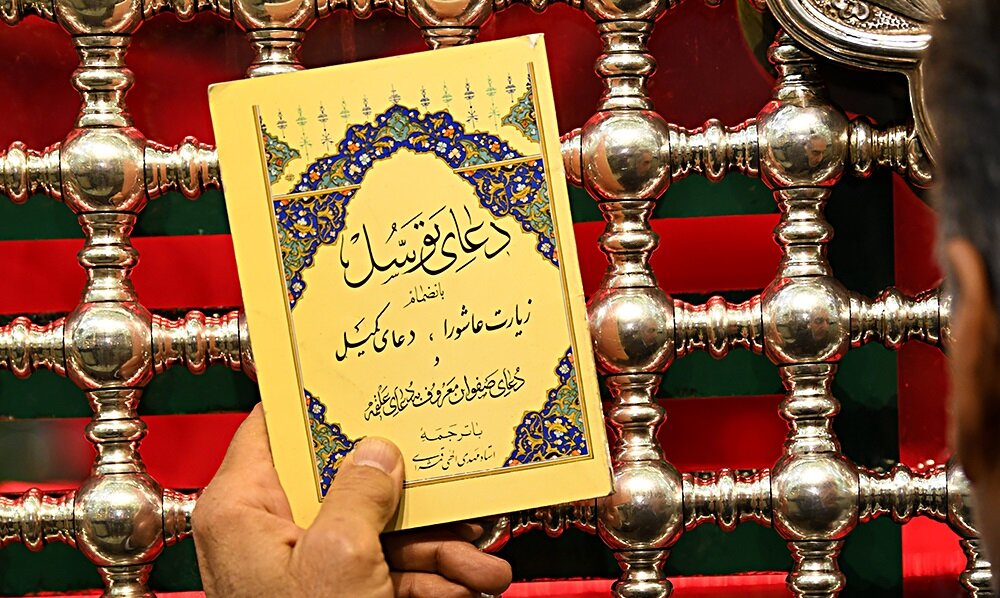 دعای توسّل
بانضمام
زیارت عاشورا ، دعای کمیل
و
دعای صفوان معروف به دعای علقمه
با ترجمه
استاد مهدی الهی قمشه‌ای